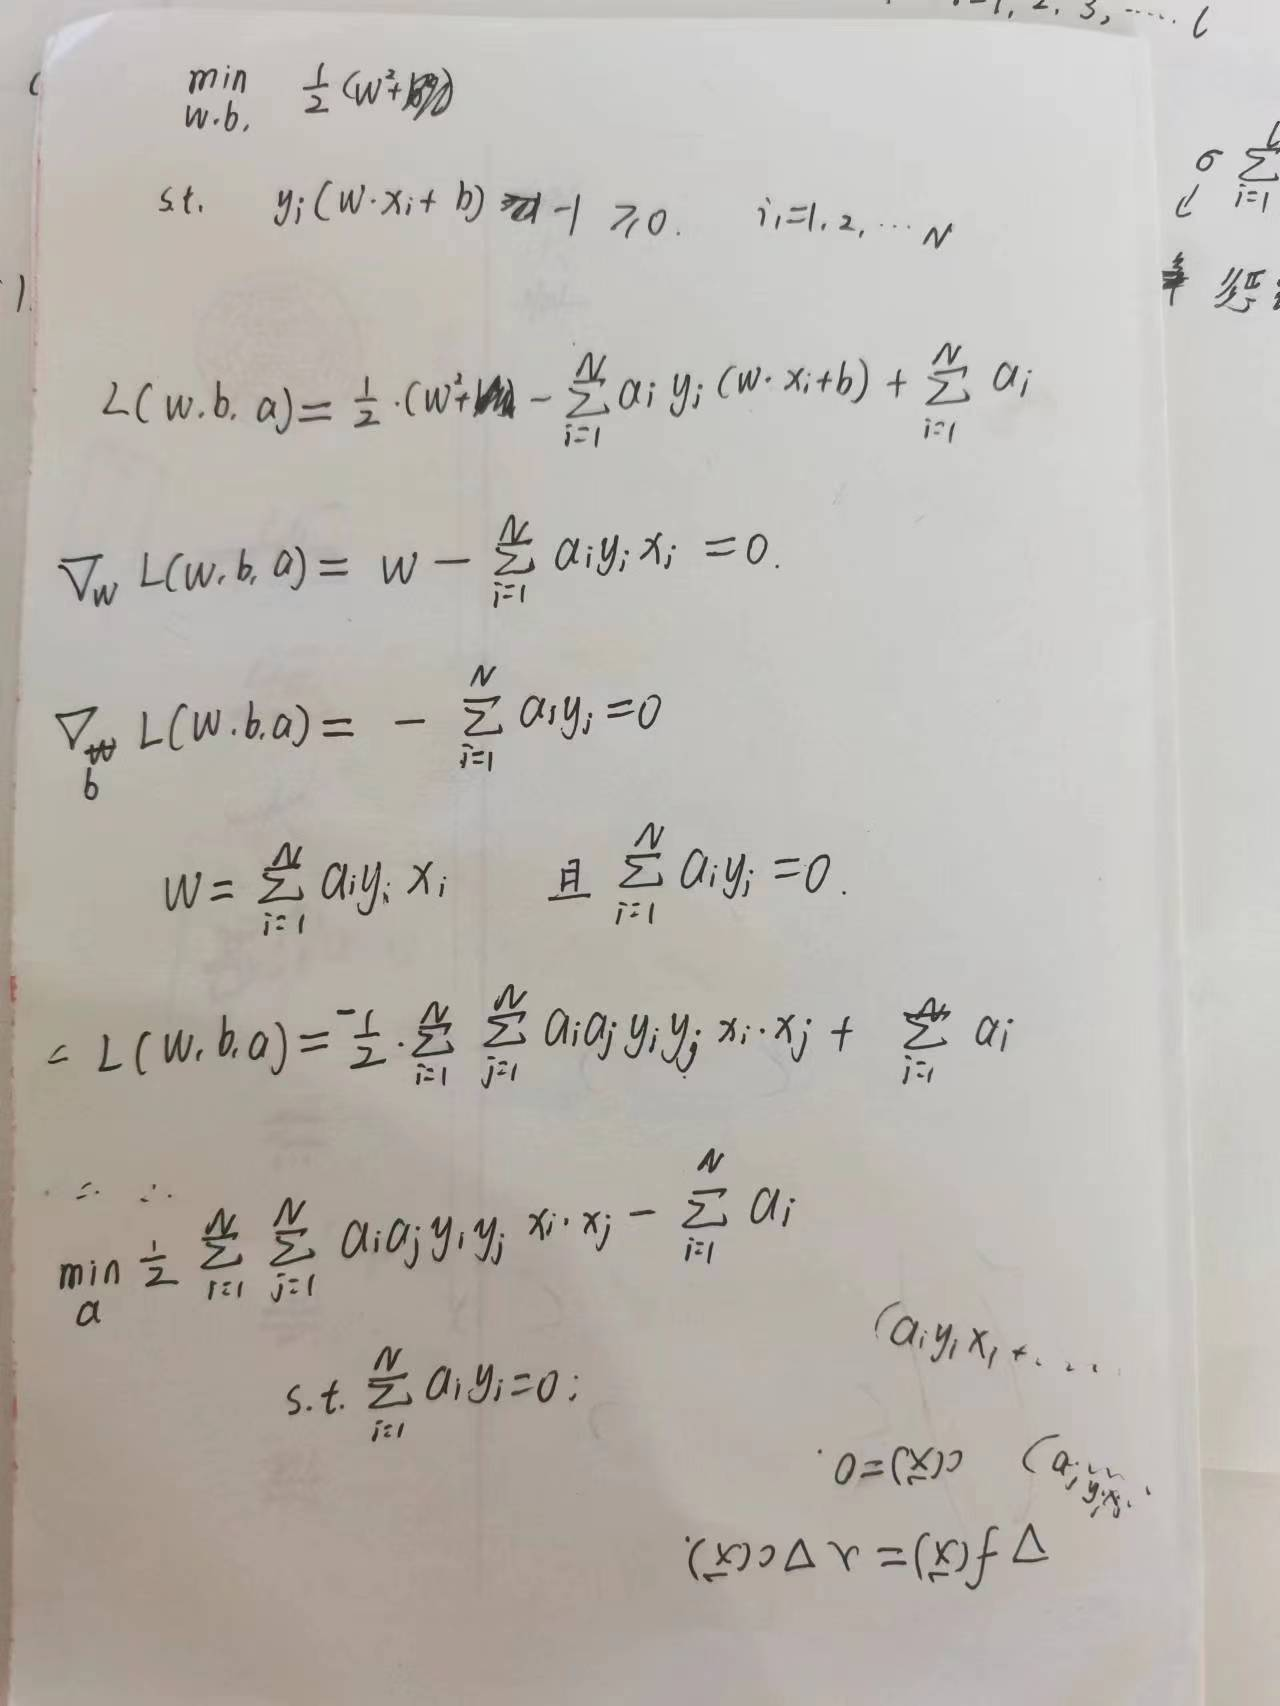 i=1, 2, 3, ..... l
min 1/2 (w²+
w.b.
s.t. yᵢ(w·xᵢ+b) -1 ≥0. i,=1, 2, ... N
σ ∑ i=1
1.
经
L(w.b.a)= 1/2·(w²+ - ∑_{i=1}^{N} aᵢyᵢ(w·xᵢ+b) + ∑_{i=1}^{N} aᵢ
∇_w L(w,b,a)= w - ∑_{i=1}^{N} aᵢyᵢxᵢ =0.
∇_b L(w.b.a)= - ∑_{i=1}^{N} aᵢyᵢ=0
w= ∑_{i=1}^{N} aᵢyᵢxᵢ 且 ∑_{i=1}^{N} aᵢyᵢ=0.
= L(w,b,a)= -1/2·∑_{i=1}^{N} ∑_{j=1}^{N} aᵢaⱼyᵢyⱼ xᵢ·xⱼ + ∑_{i=1}^{N} aᵢ
min_a 1/2 ∑_{i=1}^{N} ∑_{j=1}^{N} aᵢaⱼyᵢyⱼ xᵢ·xⱼ - ∑_{i=1}^{N} aᵢ
(aᵢyᵢx₁+....
s.t. ∑_{i=1}^{N} aᵢyᵢ=0;
c(x)=0.
∇f(x)=λ∇c(x).